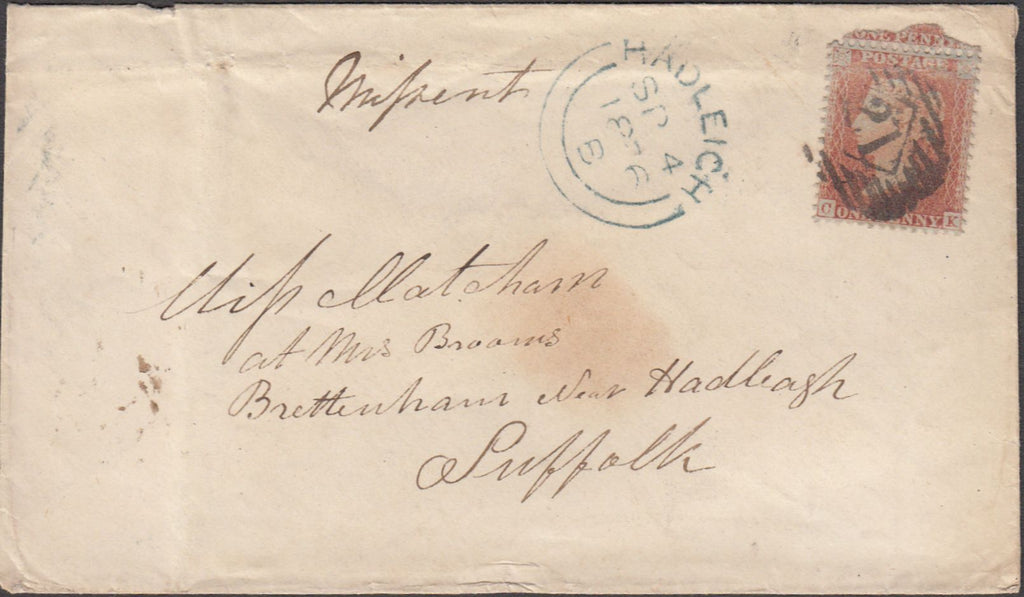 Missent
HADLEIGH
SP 4
1856
B
ONE PENNY
POSTAGE
C ONE PENNY K
Miss Matcham
at Mrs Brooms
Brettenham Near Hadleagh
Suffolk